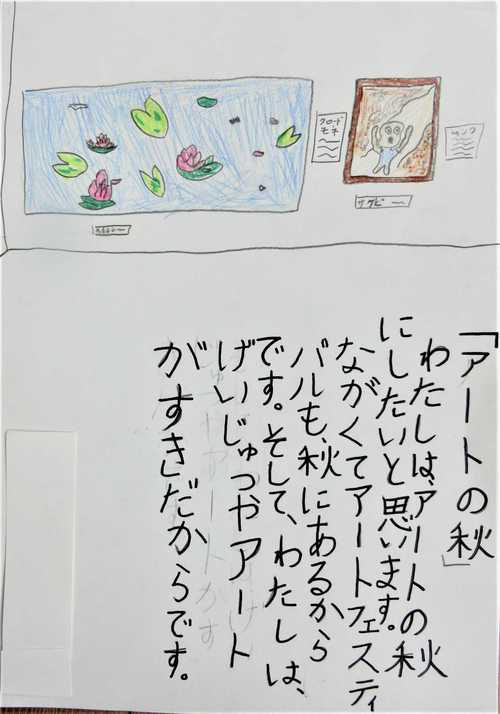 クロード
モネ
「アートの秋」
わたしは、アートの秋
にしたいと思います。
ながくてアートフェスティ
バルも、秋にあるから
です。そして、わたしは、
げいじゅつやアート
がすきだからです。